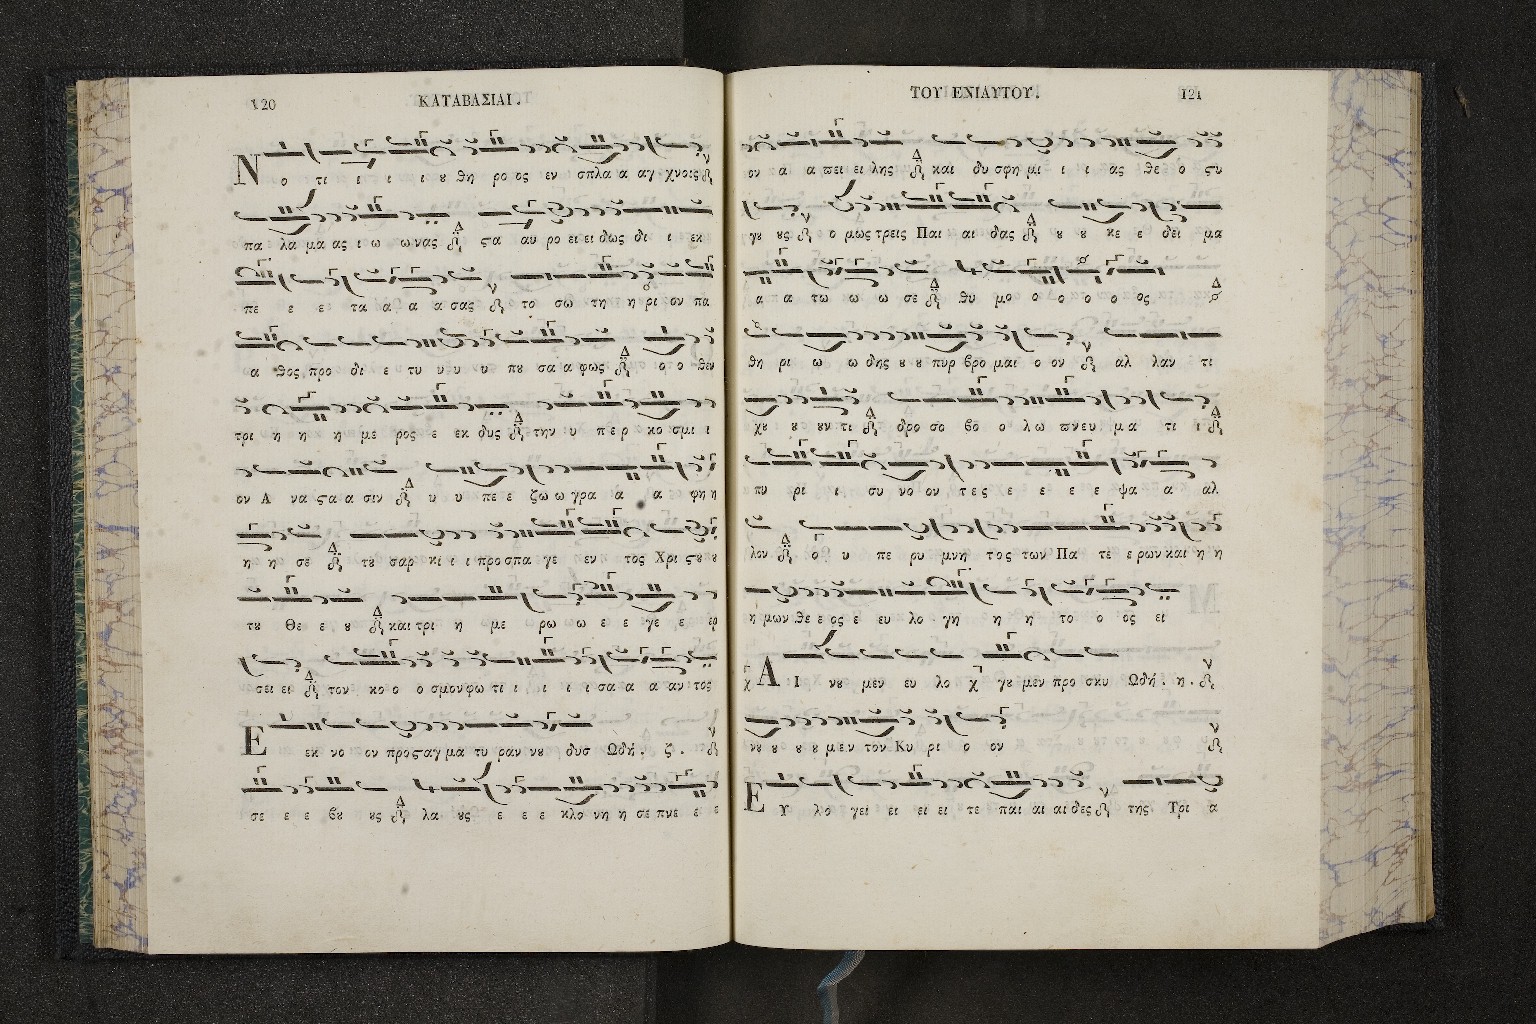 120 ΚΑΤΑΒΑΣΙΑΙ.
Ν ο τι ι ι ι ȣ θη ρο ος εν σπλα α αγ χνοις
πα λα μα ας ι ω ωνας ϛα αυ ρο ει ει δως δι ι εκ
πε ε ε τα α α α σας το σω τη η ρι ον πα
α θος προ δι ε τυ υ υ υ πȣ σα α φως ο ο θεν
τρι η η η με ρος ε εκ δυς την υ περ κο σμι ι
ον Α να ϛα α σιν υ υ πε ε ζω ω γρα α α φη η
η η σε τȣ σαρ κι ι ι προσπα γε εν τος Χρι ϛȣ ȣ
τȣ Θε ε ȣ και τρι η με ρω ω ε ε γε ε ερ
σει ει τον κο ο ο σμον φω τι ι ι ι ι σα α α αν τος
Ε εκ νο ον προϛαγ μα τυ ραν νȣ δυσ Ωδή. ζ.
σε ε ε βȣ ȣς λα ȣς ε ε ε κλο νη η σε πνε ε ε
ΤΟΥ ΕΝΙΑΥΤΟΥ. 121
ον α α πει ει λης και δυ σφη μι ι ι ας θε ο ϛυ
γȣ ȣς ο μως τρεις Παι αι δας ȣ ȣ κε ε δει μα
α α τω ω ω σε θυ μο ο ο ο ο ος
θη ρι ω ω δης ȣ ȣ πυρ βρο μαι ο ον αλ λαν τι
χȣ ȣ ȣν τι δρο σο βο ο λω πνευ μα τι ι
πυ ρι ι συ νο ον τες ε ε ε ε ψα α αλ
λον ο υ πε ρυ μνη τος των Πα τε ε ρων και η η
η μων θε ε ος ε ευ λο γη η η το ο ος ει
Α Ι νȣ μεν ευ λο γȣ μεν προ σκυ Ωδή. η.
νȣ ȣ ȣ ȣ μεν τον Κυ ρι ο ον
Ε Υ λο γει ει ει ει τε παι αι αι δες της Τρι α